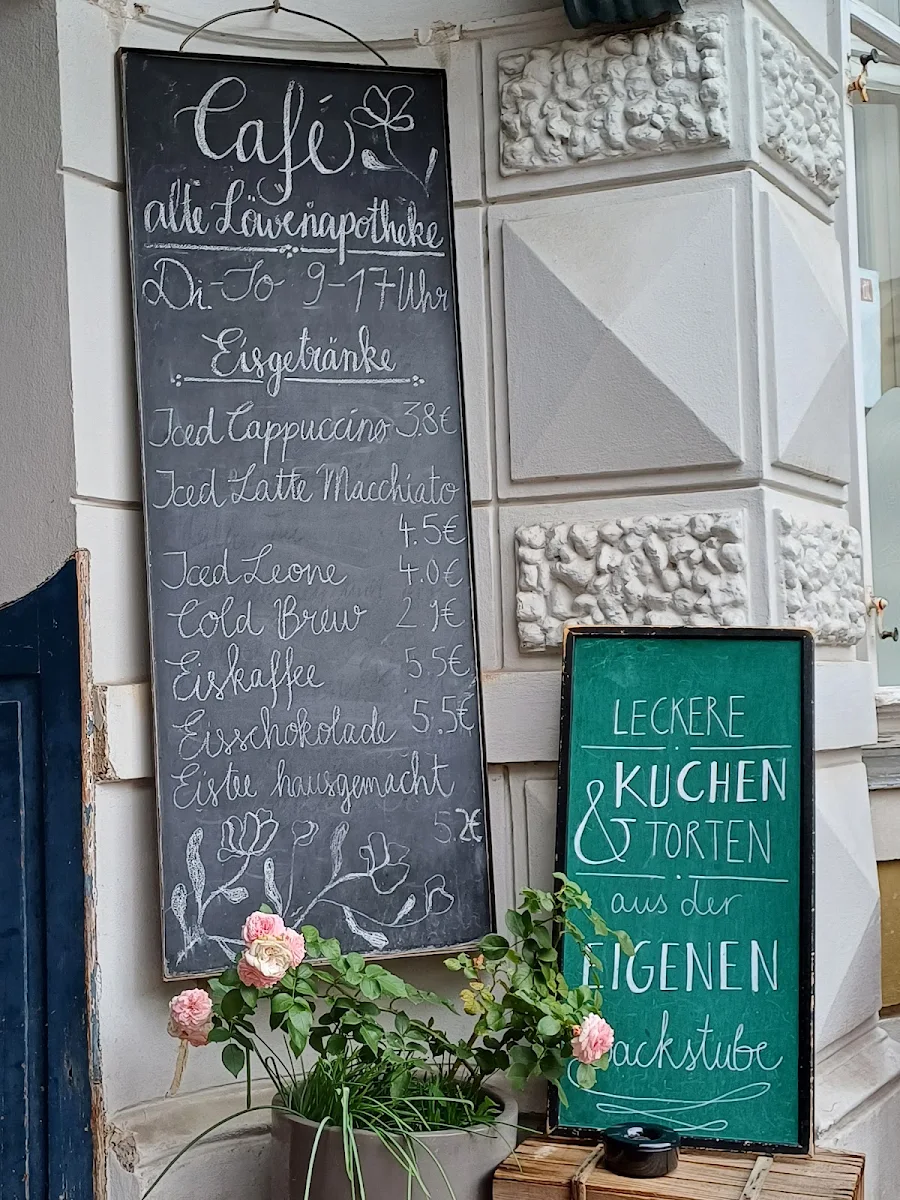 Café
alte Löwenapotheke
Di.-So 9-17 Uhr
Eisgetränke
Iced Cappuccino 3.8€
Iced Latte Macchiato
4.5€
Iced Leone 4.0€
Cold Brew 2.9€
Eiskaffee 5.5€
Eisschokolade 5.5€
Eistee hausgemacht
5.2€
LECKERE
KUCHEN
& TORTEN
aus der
EIGENEN
Backstube